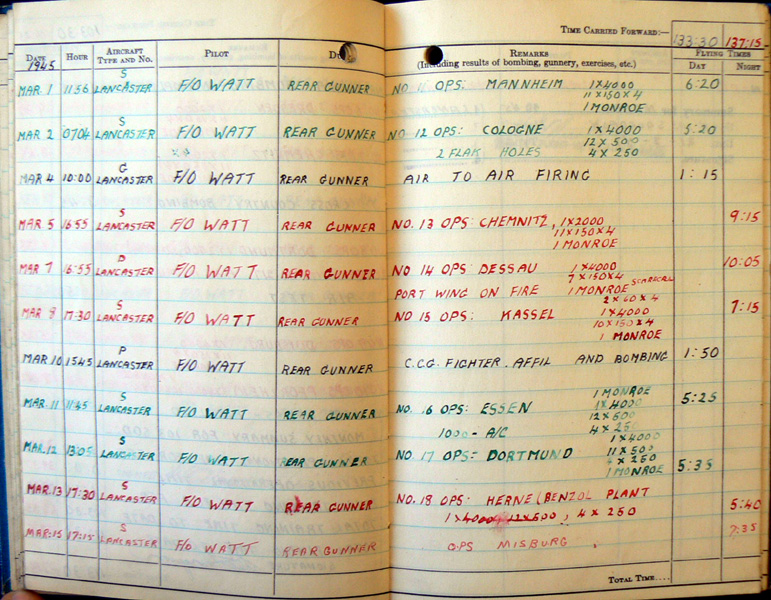 TIME CARRIED FORWARD:— 133:30 137:15
DATE HOUR AIRCRAFT TYPE AND NO. PILOT REMARKS FLYING TIMES
1945 (Including results of bombing, gunnery, exercises, etc.) DAY NIGHT
MAR 1 11:36 S LANCASTER F/O WATT REAR GUNNER NO OPS: MANNHEIM 1X4000 6:20
11X150X4
1 MONROE
MAR 2 0704 S LANCASTER F/O WATT REAR GUNNER NO 12 OPS: COLOGNE 1X4000 5:20
12X500
2 FLAK HOLES 4X250
MAR 4 10:00 G LANCASTER F/O WATT REAR GUNNER AIR TO AIR FIRING 1:15
MAR 5 16:55 S LANCASTER F/O WATT REAR GUNNER NO. 13 OPS: CHEMNITZ, 1X2000 9:15
11X150X4
1 MONROE
MAR 7 16:55 D LANCASTER F/O WATT REAR GUNNER NO 14 OPS: DESSAU 1X4000 10:05
7X150X4
PORT WING ON FIRE 1 MONROE
2X60X4
MAR 8 17:30 S LANCASTER F/O WATT REAR GUNNER NO 15 OPS: KASSEL 1X4000 7:15
10X150X4
1 MONROE
MAR 10 1545 P LANCASTER F/O WATT REAR GUNNER C.C.G. FIGHTER. AFFIL AND BOMBING 1:50
1 MONROE
MAR. 11 11:45 S LANCASTER F/O WATT REAR GUNNER NO. 16 OPS: ESSEN 1X4000 5:25
12X500
1000 - A/C 4X250
1X4000
MAR. 12 13:05 S LANCASTER F/O WATT REAR GUNNER NO 17 OPS:- DORTMUND 11X500 5:35
4X250
1 MONROE
MAR. 13 17:30 S LANCASTER F/O WATT REAR GUNNER NO. 18 OPS: HERNE (BENZOL PLANT 5:40
1X4000 12X500, 4X250
MAR: 15 17:15 S LANCASTER F/O WATT REAR GUNNER OPS MISBURG 7:35
TOTAL TIME....